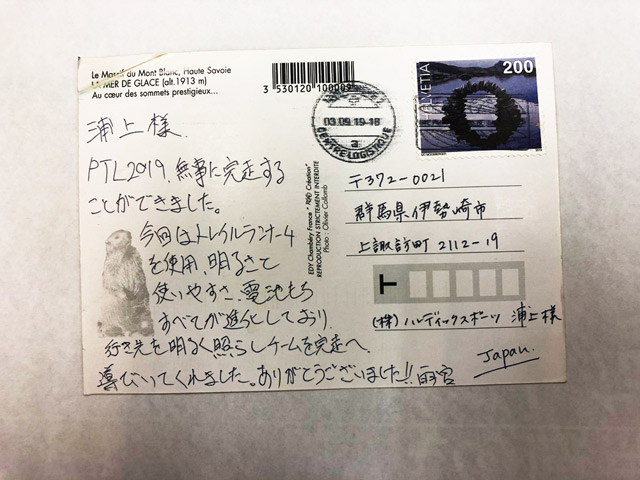 Le Massif du Mont Blanc, Haute Savoie
LA MER DE GLACE (alt.1913 m)
Au cœur des sommets prestigieux...
3 530120 100009
浦上様
PTL2019、無事に完走する
ことができました。
今回はトレイルランナー4
を使用、明るさて
使いやすさ、電池もち
すべてが進化しており、
行き先を明るく照らしチームを完走へ
導びいてくれました。ありがとうございました!! 雨宮
EDY Chambéry France - "R/E Création"
REPRODUCTION STRICTEMENT INTERDITE
Photo : Olivier Collomb
03.09.19-18
a
CENTRE LOGISTIQUE
HELVETIA
200
〒372-0021
群馬県伊勢崎市
上諏訪町 2112-19
T
(株) ハルディックスポーツ 浦上様
Japan.